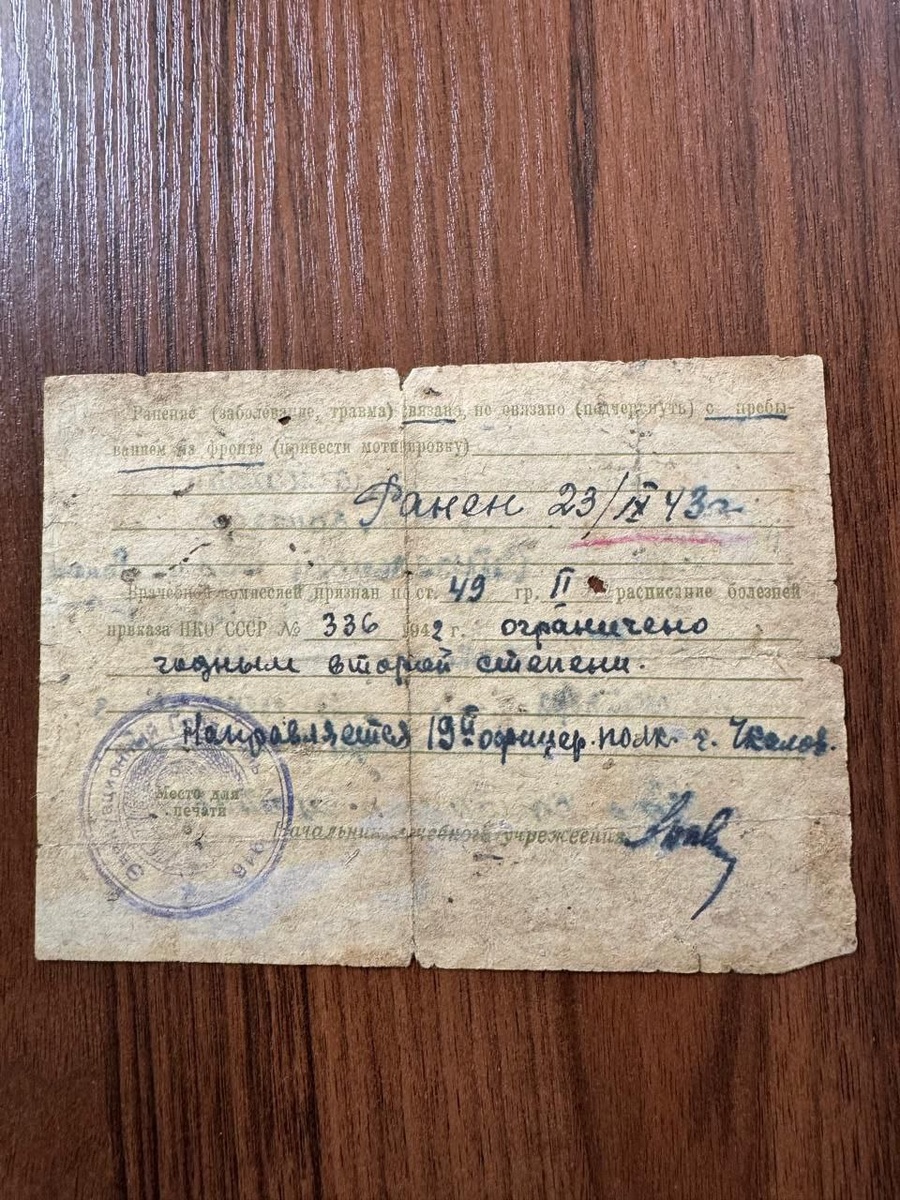 Ранение (заболевание, травма) связано, не связано (подчеркнуть) с пребы-
ванием на фронте (привести мотивировку)
Ранен 23/IX 43 г.
Врачебной комиссией признан по ст. 49 гр. II расписание болезней
приказа НКО СССР № 336 1942 г. ограничено
годным второй степени.
Направляется 19й офицер. полк. г. Чкалов.
Место для
печати
Начальник лечебного учреждения
Эвакуационный Госпиталь №